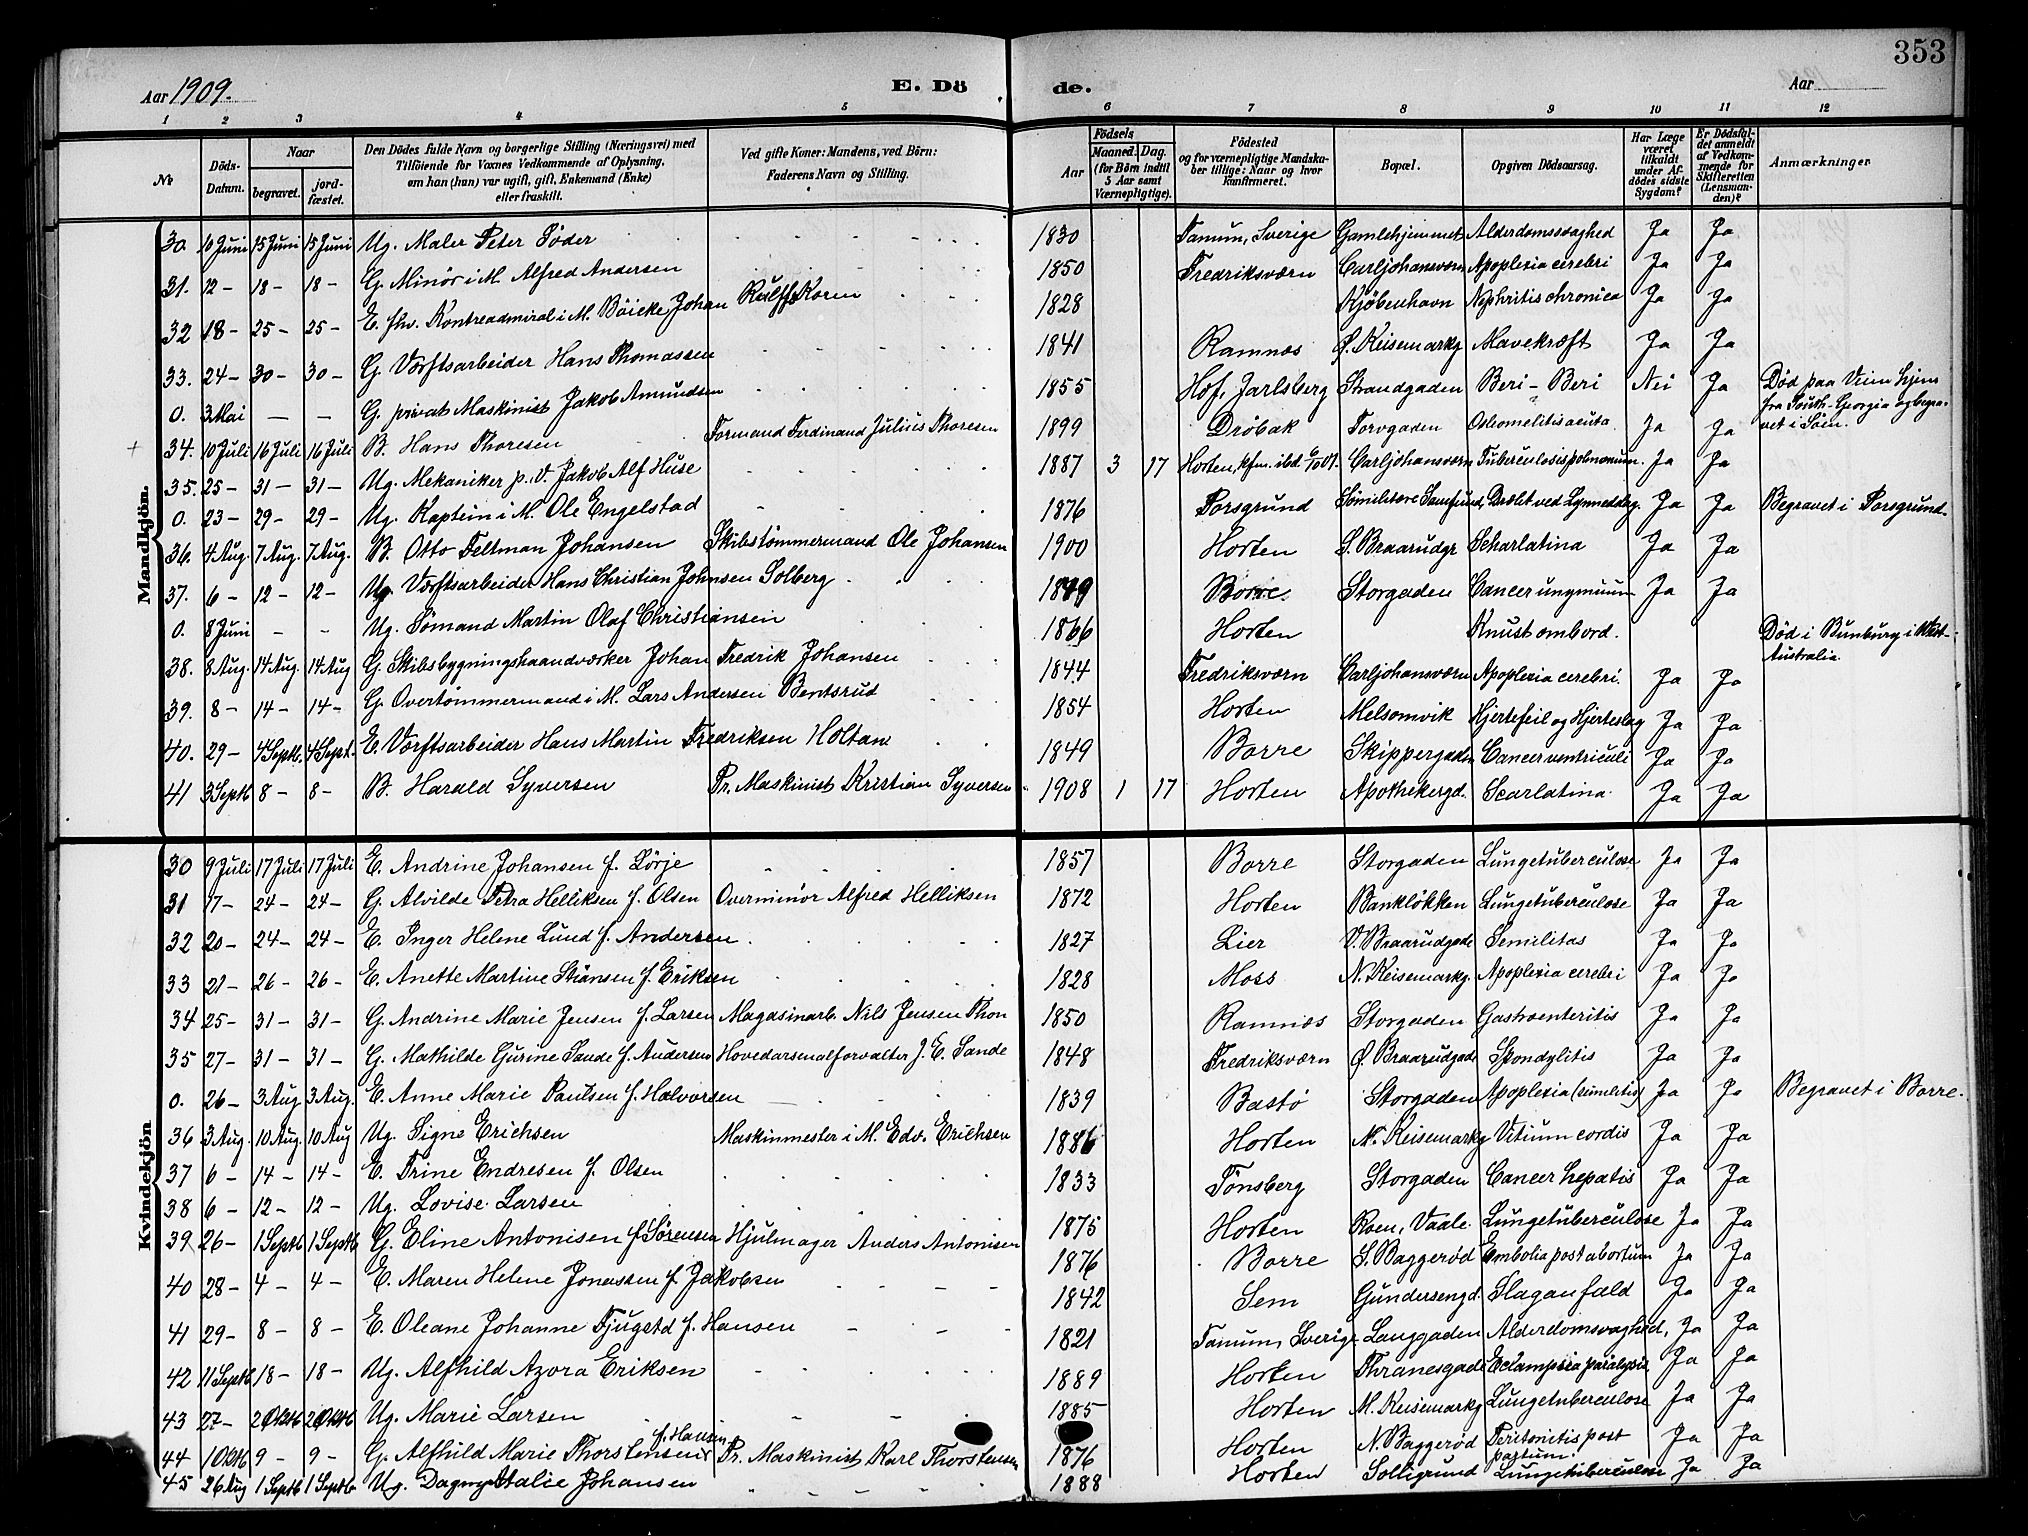 353
Aar 1909.
E. Dö de.
Aar
1 2 3 4 5 6 7 8 9 10 11 12
№
Döds-Datum.
Naar
begravet.
jord-fæstet.
Den Dödes fulde Navn og borgerlige Stilling (Næringsvei) med Tilföiende for Voxnes Vedkommende af Oplysning, om han (hun) var ugift, gift, Enkemand (Enke) eller fraskilt.
Ved gifte Koner: Mandens, ved Börn: Faderens Navn og Stilling.
Födsels
Aar
Maaned. Dag.
(for Börn indtil 5 Aar samt Værnepligtige).
Födested og for værnepligtige Mandskaber tillige: Naar og hvor konfirmeret.
Bopæl.
Opgiven Dödsaarsag.
Har Læge været tilkaldt under Afdödes sidste Sygdom?
Er Dödsfaldet anmeldt af Vedkommende for Skifteretten (Lensmanden)?
Anmærkninger
Mandkjön.
30. 10 Juni 15 Juni 15 Juni Ug. Maler Peter Söder 1830 Tanum, Sverige Gamlehjemmet Alderdomssvaghed Ja Ja
31. 12 – 18 – 18 – G. Minör i M. Alfred Andersen 1850 Fredriksværn Carljohansværn Apoplexia cerebri Ja Ja
32 18 – 25 – 25 – E. fhv. Kontreadmiral i M. Böicke Johan Rulffs Koren 1828 Kjöbenhavn Nephritis chronica Ja Ja
33. 24 – 30 – 30 – G. Værftsarbeider Hans Thomassen 1841 Ramnæs Ø. Keisemarkg Mavekræft Ja Ja
0. 3 Mai – – G. privat Maskinist Jakob Amundsen 1855 Hof, Jarlsberg Strandgaden Beri-Beri Nei Ja Död paa Veien hjem fra South-Georgia og begravet i Söen.
34. 10 Juli 16 Juli 16 Juli B. Hans Thoresen Formand Ferdinand Julius Thoresen 1899 Dröbak Torvgaden Osteomelitis acuta. Ja Ja
35. 25 – 31 – 31 – Ug. Mekaniker p. V. Jakob Alf Huse 1887 3 17 Horten, kfm. ibd. Carljohansværn Tuberculosis polmonum. Ja Ja
0. 23 – 29 – 29 – Ug. Kaptein i M. Ole Engelstad 1876 Porsgrund Sömilitære Samfund, Dræbt ved Lynnedslag. Ja Ja Begravet i Porsgrund.
36. 4 Aug. 7 Aug. 7 Aug. B. Otto Feltman Johansen Skibstömmermand Ole Johansen 1900 Horten S. Braarudgr Scharlatina Ja Ja
37. 6 – 12 – 12 – Ug. Værftsarbeider Hans Christian Johnsen Solberg 1849 Borre. Storgaden Cancer Ja Ja
0. 8 Juni – – Ug. Sömand Martin Olaf Christiansen 1866 Horten Knust ombord. Död i Bunbury i West-Australia.
38. 8 Aug. 14 Aug. 14 Aug G. Skibsbygningshaandværker Johan Fredrik Johansen 1844 Fredriksværn Carljohansværn Apoplexia cerebri. Ja Ja
39. 8 – 14 – 14 – G. Overtömmermand i M. Lars Andersen Bentsrud 1854 Horten Melsomvik Hjertefeil og Hjerteslag Ja Ja
40. 29 – 4 Septb. 4 Sept. E. Værftsarbeider Hans Martin Fredriksen Holtan 1849 Borre Skippergaden Cancer ventriculi Ja Ja
41 3 Septb 8 – 8 – B. Harald Syversen Pr. Maskinist Kristian Syversen 1908 1 17 Horten Apothekergd. Scarlatina Ja Ja
Kvindekjön
30 9 Juli 17 Juli 17 Juli E. Andrine Johansen f. Lörje 1857 Borre Storgaden Lungetuberculose Ja Ja
31 17 – 24 – 24 – G. Alvilde Petra Helliksen f. Olsen Overminör Alfred Helliksen 1872 Horten Banklökken Lungetuberculose Ja Ja
32 20 – 24 – 24 – E. Inger Helene Lund f. Andersen 1827 Lier V. Braarudgade Semilitas Ja Ja
33 21 – 26 – 26 – E. Anette Martine Stiansen f. Eriksen 1828 Moss N. Keisemarkg. Apoplexia cerebri Ja Ja
34 25 – 31 – 31 – G. Andrine Marie Jensen f. Larsen Magasinarb. Nils Jensen Thon 1850 Ramnæs Storgaden Gastroenteritis Ja Ja
35 27 – 31 – 31 – G. Mathilde Gurine Sande f. Andersen Hovedarsenalforvalter J. E. Sande 1848 Fredriksværn Ø. Braarudgade Spondylitis Ja Ja
0. 26 – 3 Aug 3 Aug. E. Anne Marie Paulsen f. Halvorsen 1839 Bastö Storgaden Apoplexia (similitis) Ja Ja Begravet i Borre.
36 3 Aug. 10 Aug. 10 Aug Ug. Signe Erichsen Maskinmester i M. Edv. Erichsen 1886 Horten N. Keisemarkg Vitium cordis Ja Ja
37 6 – 14 – 14 – E. Trine Endresen f. Olsen 1833 Tönsberg Storgaden Cancer hepatis Ja Ja
38 6 – 12 – 12 – Ug. Lovise Larsen 1875 Horten Roen, Vaale Lungetuberculose Ja Ja
39 26 – 1 Septb 1 Septb G. Eline Antonisen f. Sörensen Hjulmager Anders Antonisen 1876 Borre S. Baggeröd Embolia post abortum Ja Ja
40 28 – 4 – 4 – E. Maren Helene Jonassen f. Jakobsen 1842 Sem Gundersengd. Slaganfald Ja Ja
41 29 – 8 – 8 – E. Oleane Johanne Fjugstd f. Hansen 1821 Tanum, Sverige. Langgaden Alderdomsvaghed, Ja Ja
42 11 Septb 18 – 18 – Ug. Alfhild Azora Eriksen 1889 Horten Thranesgade Eclampsia paralysis Ja Ja
43 27 – 2 Oktb 2 Oktb Ug. Marie Larsen 1885 Horten M. Keisemarkg Lungetuberculose Ja Ja
44 1 Oktb 9 – 9 – G. Alfhild Marie Thorstensen f. Hansen Pr. Maskinist Karl Thorstensen 1876 Horten N. Baggeröd Peritonitis post partum Ja Ja
45 26 Aug 1 Septb 1 Septb Ug. Dagny Atalie Johansen 1888 Horten Solligrund Lungetuberculose Ja Ja